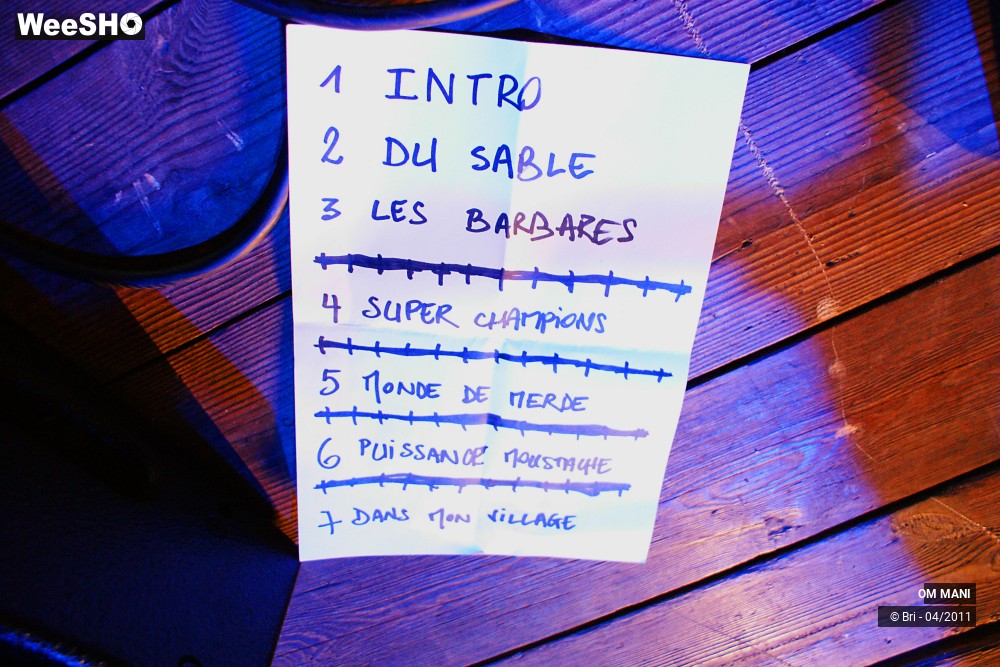 WeeSHO
1 INTRO
2 DU SABLE
3 LES BARBARES
4 SUPER CHAMPiONS
5 MONDE DE MERDE
6 PUiSSANCE MOUSTACHE
7 DANS MON ViLLAGE
OM MANI
© Bri - 04/2011